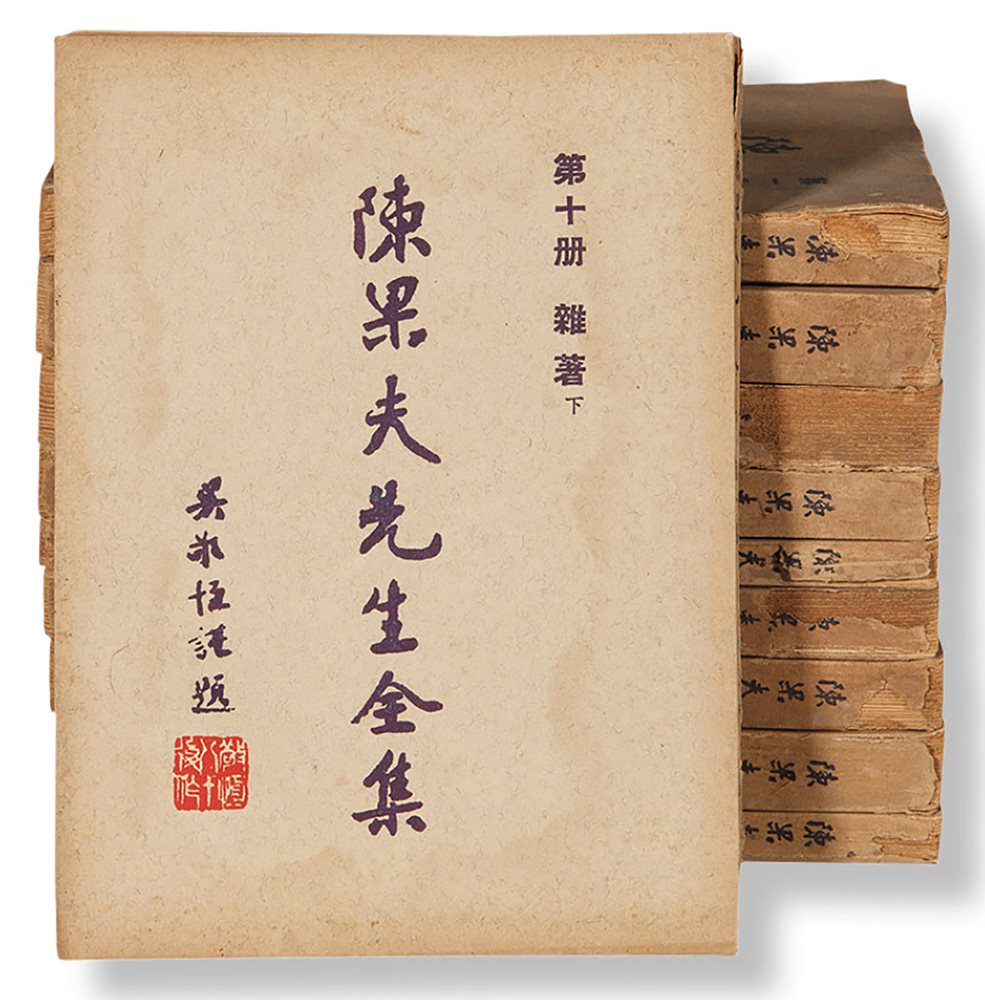 第十册 雜著下
陳果夫先生全集
吳敬恒謹題
敬恆八十後作
陳
陳果
陳果
陳果
陳果夫
果
陳果夫
陳果
陳果